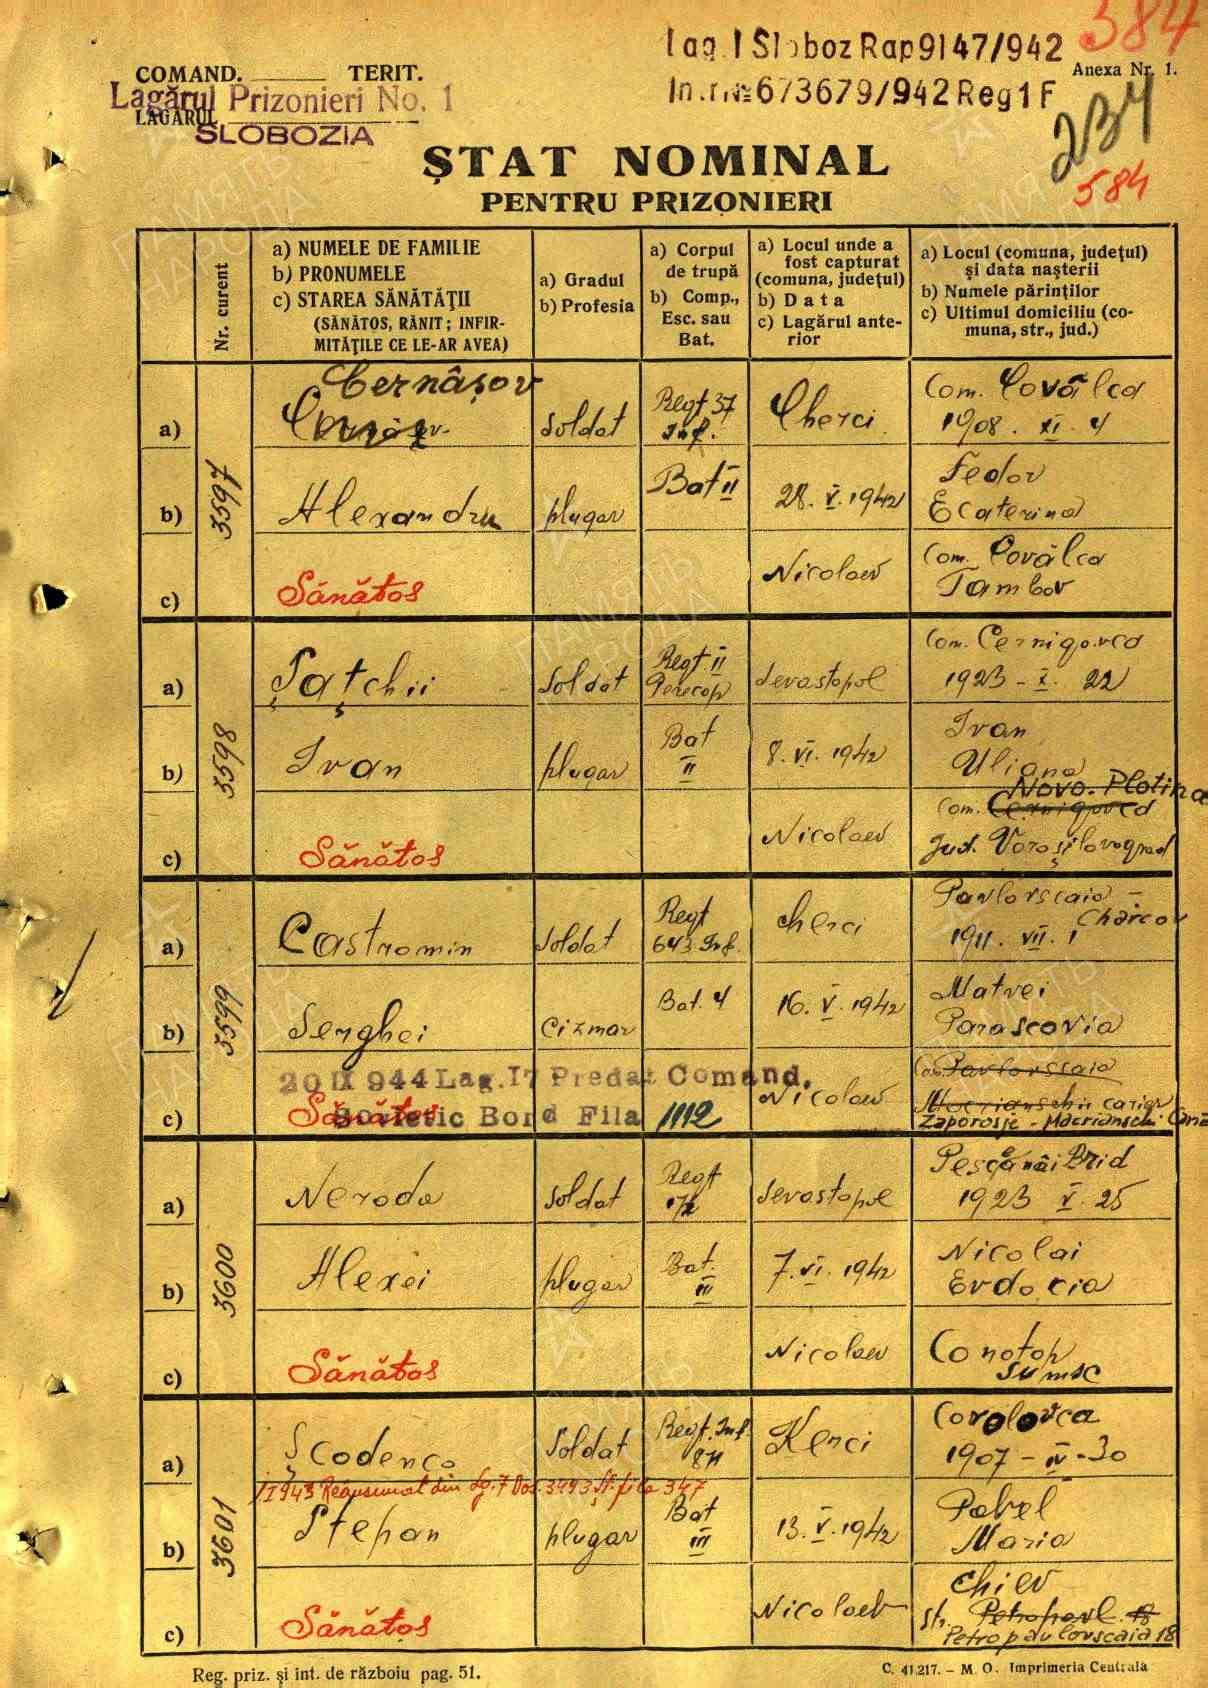 Lag. I Sloboz Rap 9147/942
384
COMAND. ______ TERIT.
Anexa Nr. 1.
Lagărul Prizonieri No. 1
In. r № 673679/942 Reg 1 F
LAGĂRUL
SLOBOZIA
234
584
ȘTAT NOMINAL
PENTRU PRIZONIERI
Nr. curent
a) NUMELE DE FAMILIE
b) PRONUMELE
c) STAREA SĂNĂTĂŢII
(SĂNĂTOS, RĂNIT; INFIR-
MITĂŢILE CE LE-AR AVEA)
a) Gradul
b) Profesia
a) Corpul
de trupă
b) Comp.,
Esc. sau
Bat.
a) Locul unde a
fost capturat
(comuna, judeţul)
b) Data
c) Lagărul ante-
rior
a) Locul (comuna, judeţul)
şi data naşterii
b) Numele părinţilor
c) Ultimul domiciliu (co-
muna, str., jud.)
3597
a) Cernâșov soldat Regt 37 Inf. Cherci Com. Covâlca
1908. XI. 4
b) Alexandru plugar Bat II 28. V. 1942 Fedor
Ecaterina
c) Sănătos Nicolaev Com. Covâlca
Tambov
3598
a) Șațchii soldat Regt. II Perecop Sevastopol Com. Cernigovca
1923 - X. 22
b) Ivan plugar Bat II 8. VI. 1942 Ivan
Uliana
c) Sănătos Nicolaev com. Cernigovca Novo. Plotina
Jud. Voroșilovograd
3599
a) Castromin soldat Regt 643 Inf. Cherci Pavlovscaia -
Charcov
1911. VII. 1
b) Serghei Cizmar Bat. 4 16. V. 1942 Matvei
Parascovia
c) Sănătos Nicolaev Pavlovscaia
20 IX 944 Lag. 17 Predat Comand.
Sovietic Bord Fila 1112
Zaporosje - Macrianschi
3600
a) Neroda soldat Regt Sevastopol Brid
1923 V. 25
b) Alexei plugar Bat. III 7. VI. 1942 Nicolai
Evdocia
c) Sănătos Nicolaev Conotop
Sumsc
3601
a) Școdenco Soldat Regt. Inf. Kerci Corolovca
1907 - IV - 30
1943 din Lg. 7 Dos. 3493 fila 347
b) Stepan plugar Bat III 13. V. 1942 Pavel
Maria
c) Sănătos Nicolaev Chiev
Str. Petropavl. 18
Petropavlovscaia 18
Reg. priz. şi int. de războiu pag. 51.
C. 41.217. – M. O. Imprimeria Centrală
ПАМЯТЬ НАРОДА